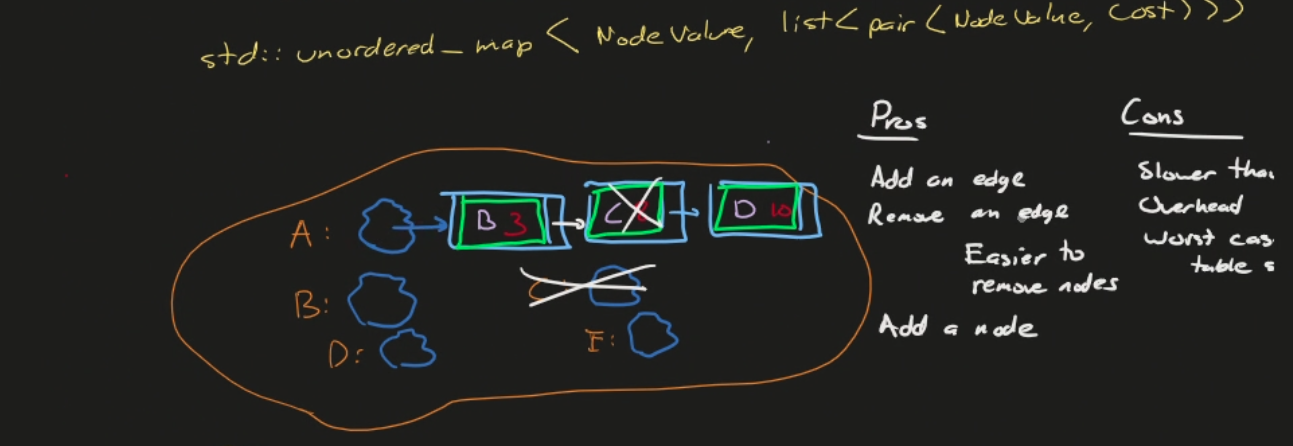 std::unordered_map < NodeValue, list<pair<NodeValue, Cost>>>
Pros
Add an edge
Remove an edge
Easier to
remove nodes
Add a node
Cons
Slower than
Overhead
Worst cas
table s
A: B 3 C D 10
B:
D:
F: